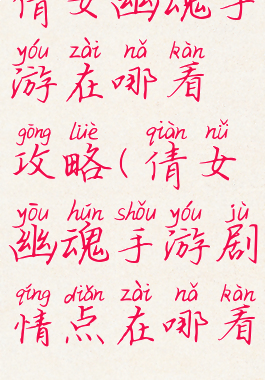 倩女幽魂手
yóu zài nǎ kàn
游在哪看
gōng lüè qiàn nǚ
攻略(倩女
yōu hún shǒu yóu jù
幽魂手游剧
qíng diǎn zài nǎ kàn
情点在哪看